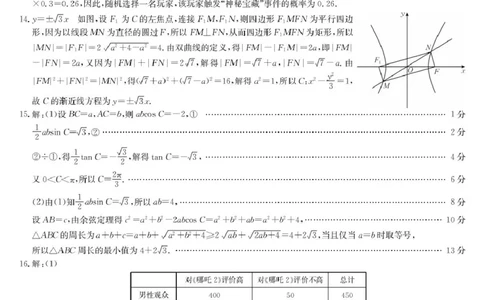 ×0.3=0.26,因此,随机选择一名玩家,该玩家触发“神秘宝藏”事件的概率为0.26.
14.y=±√3x 如图,设F₁为C的左焦点,连接F₁M,F₁N,则四边形F₁MFN为平行四边
形,因为以线段MN为直径的圆过F,所以FM⊥FN,从而四边形F₁MFN为矩形,所以
|MN|=|F₁F|=2√(a²+4-a²)=4.由双曲线的定义,得|FM|-|F₁M|=2a,即|FM|
-|FN|=2a,又因为|FM|+|FN|=2√7,解得|FM|=√7+a,|FN|=√7-a.由
|FM|²+|FN|²=|MN|²,得(√7+a)²+(√7-a)²=16,解得a²=1,所以C:x²-y²/3=1,
故C的渐近线方程为y=±√3x.
y
N
F₁
O
F
x
M
15.解:(1)设BC=a,AC=b,则abcos C=-2,① 1分
1/2absin C=√3,② 2分
②÷①,得1/2tan C=-√3/2,解得tan C=-√3, 4分
又0<C<π,所以C=2π/3. 6分
(2)由(1)知1/2absin C=√3,所以ab=4, 8分
设AB=c,由余弦定理得c²=a²+b²-2abcos C=a²+b²+ab=a²+b²+4, 10分
△ABC的周长为a+b+c=a+b+√(a²+b²+4)≥2√ab+√(2ab+4)=4+2√3,当且仅当a=b时取等号,
所以△ABC周长的最小值为4+2√3. 13分
16.解:(1)
对《哪吒2》评价高 对《哪吒2》评价不高 总计
男性观众 400 50 450